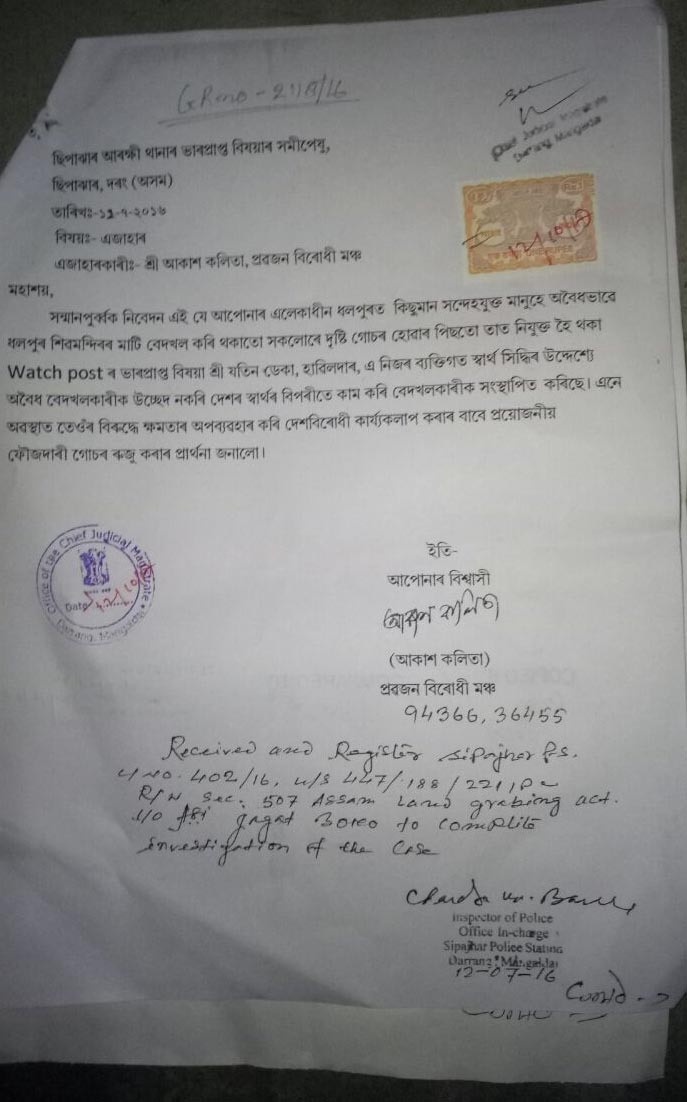 GR no - 2118/16
Chief Judicial Magistrate
Darrang, Mangaldai
ছিপাঝাৰ আৰক্ষী থানাৰ ভাৰপ্ৰাপ্ত বিষয়াৰ সমীপেষু,
ছিপাঝাৰ, দৰং (অসম)
তাৰিখঃ-১১-৭-২০১৬
বিষয়ঃ- এজাহাৰ
এজাহাৰকাৰীঃ- শ্ৰী আকাশ কলিতা, প্ৰব্ৰজন বিৰোধী মঞ্চ
মহাশয়,
সন্মানপুৰ্ব্বক নিবেদন এই যে আপোনাৰ এলেকাধীন ধলপুৰত কিছুমান সন্দেহযুক্ত মানুহে অবৈধভাৱে
ধলপুৰ শিৱমন্দিৰৰ মাটি বেদখল কৰি থকাতো সকলোৰে দৃষ্টি গোচৰ হোৱাৰ পিছতো তাত নিযুক্ত হৈ থকা
Watch post ৰ ভাৰপ্ৰাপ্ত বিষয়া শ্ৰী যতিন ডেকা, হাবিলদাৰ, এ নিজৰ ব্যক্তিগত স্বাৰ্থ সিদ্ধিৰ উদ্দেশ্যে
অবৈধ বেদখলকাৰীক উচ্ছেদ নকৰি দেশৰ স্বাৰ্থৰ বিপৰীতে কাম কৰি বেদখলকাৰীক সংস্থাপিত কৰিছে। এনে
অৱস্থাত তেওঁৰ বিৰুদ্ধে ক্ষমতাৰ অপব্যৱহাৰ কৰি দেশবিৰোধী কাৰ্য্যকলাপ কৰাৰ বাবে প্ৰয়োজনীয়
ফৌজদাৰী গোচৰ ৰুজু কৰাৰ প্ৰাৰ্থনা জনালো।
Office of the Chief Judicial Magistrate
Date
Darrang, Mangaldai
ইতি-
আপোনাৰ বিশ্বাসী
আকাশ কলিতা
(আকাশ কলিতা)
প্ৰব্ৰজন বিৰোধী মঞ্চ
94366, 36455
Received and Register Sipajhar P.S.
C/NO. 402/16, U/S 447/188/221, IPC
R/W Sec. 507 Assam Land grabing act.
I/O ASI Jagat Boro to complite
investigation of the case
Inspector of Police
Office In-charge
Sipajhar Police Station
Darrang, Mangaldai
12-07-16
Contd